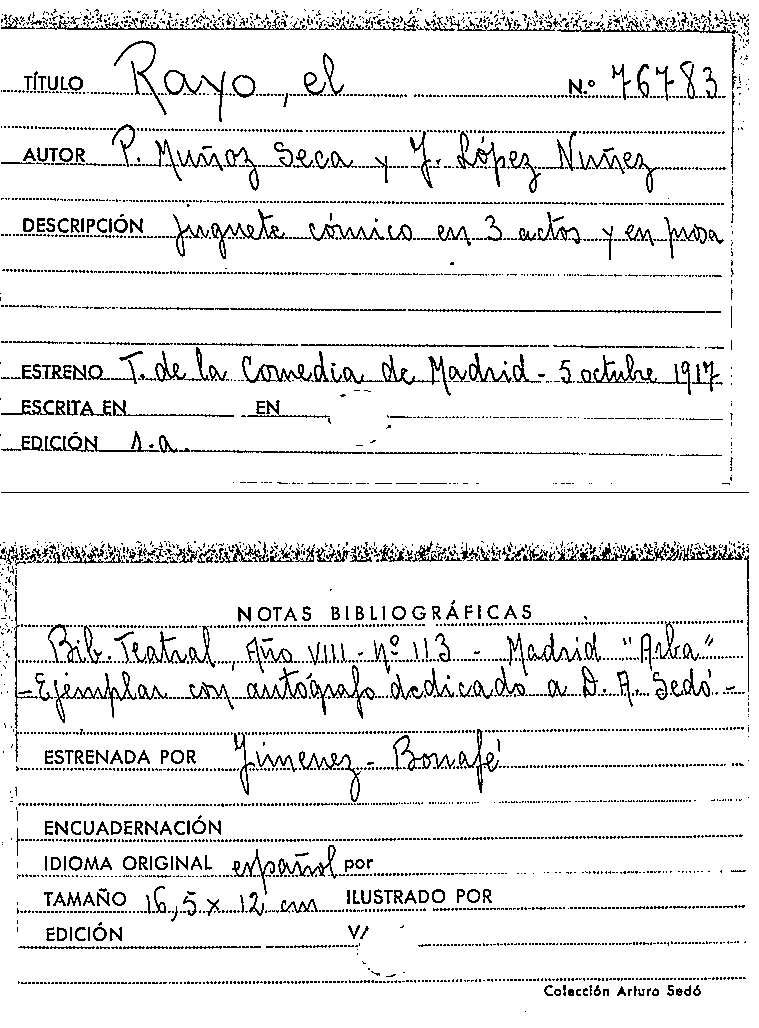 TÍTULO Rayo, el N.º 76783
AUTOR P. Muñoz Seca y J. López Nuñez
DESCRIPCIÓN juguete cómico en 3 actos y en prosa
ESTRENO T. de la Comedia de Madrid - 5 octubre 1917
ESCRITA EN EN
EDICIÓN s.a.
NOTAS BIBLIOGRÁFICAS
Bib. Teatral, Año VIII - Nº 113 - Madrid "Arba"
- Ejemplar con autógrafo dedicado a D. A. Sedó -
ESTRENADA POR Jimenez - Bonafé
ENCUADERNACIÓN
IDIOMA ORIGINAL español por
TAMAÑO 16,5 x 12 cm ILUSTRADO POR
EDICIÓN V/
Colección Arturo Sedó